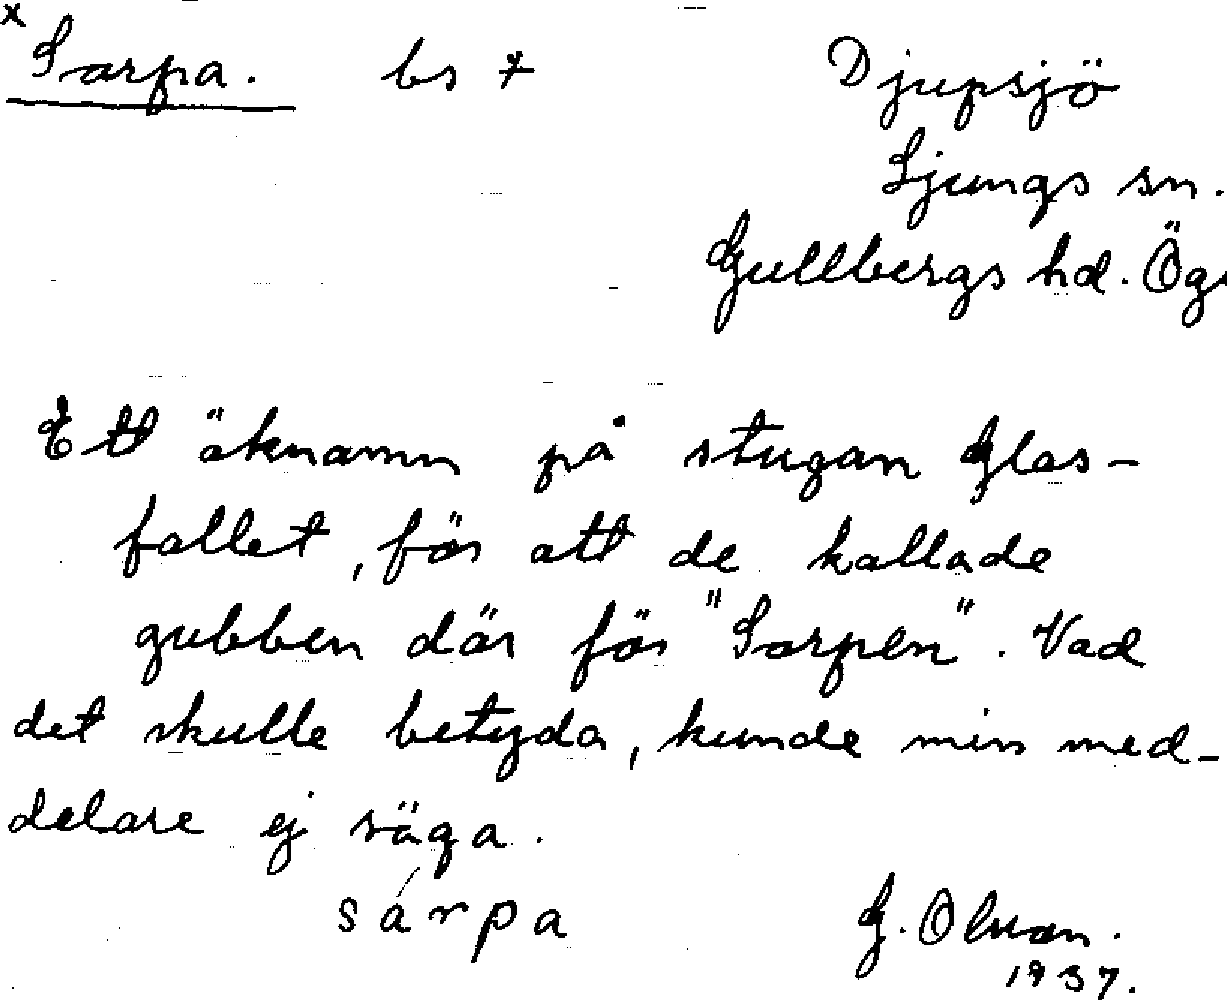 x Sarpa. bs ⨯ Djupsjö
Ljungs sn.
Gullbergs hd. Ög.
Ett öknamn på stugan Glas-
fallet, för att de kallade
gubben där för "Sarpen". Vad
det skulle betyda, kunde min med-
delare ej säga.
sárpa
G. Olson.
1937.